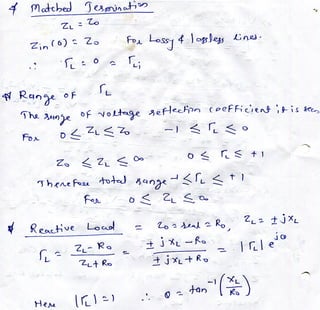 * Matched Termination
ZL = Zo
Zin(0) = Zo For Lossy & lossless Lines.
∴ ΓL = 0 = ΓLi
* Range OF ΓL
The range of voltage reflection coefficient it is seen
For 0 ≤ ZL ≤ Zo −1 ≤ ΓL ≤ 0
Zo ≤ ZL ≤ ∞ 0 ≤ ΓL ≤ +1
Therefore total range −1 ≤ ΓL ≤ +1
For 0 ≤ ZL ≤ ∞
* Reactive Load = Zo = real = Ro, ZL = ± jXL
ΓL = (ZL − Ro)/(ZL + Ro) = (± jXL − Ro)/(± jXL + Ro) = |ΓL| e^jθ
Here |ΓL| = 1 ∴ θ = tan⁻¹(XL/Ro)